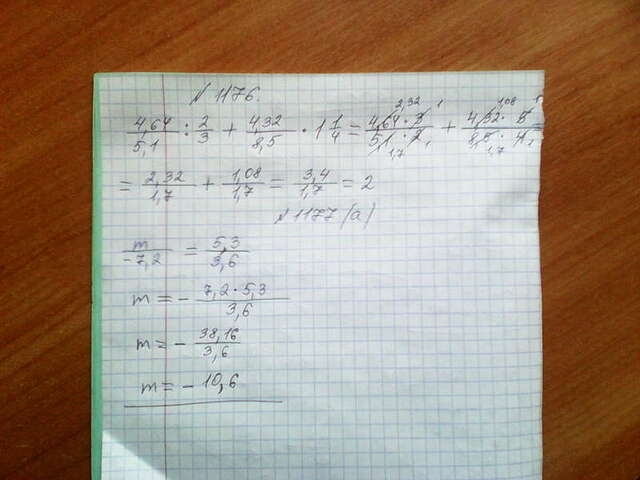 № 1176.
4,64/5,1 : 2/3 + 4,32/8,5 · 1 1/4 = 4,64 · 3/5,1 · 2 + 4,32 · 5/8,5 · 4 =
= 2,32/1,7 + 1,08/1,7 = 3,4/1,7 = 2
№ 1177 (а)
m/-7,2 = 5,3/3,6
m = - 7,2 · 5,3/3,6
m = - 38,16/3,6
m = - 10,6